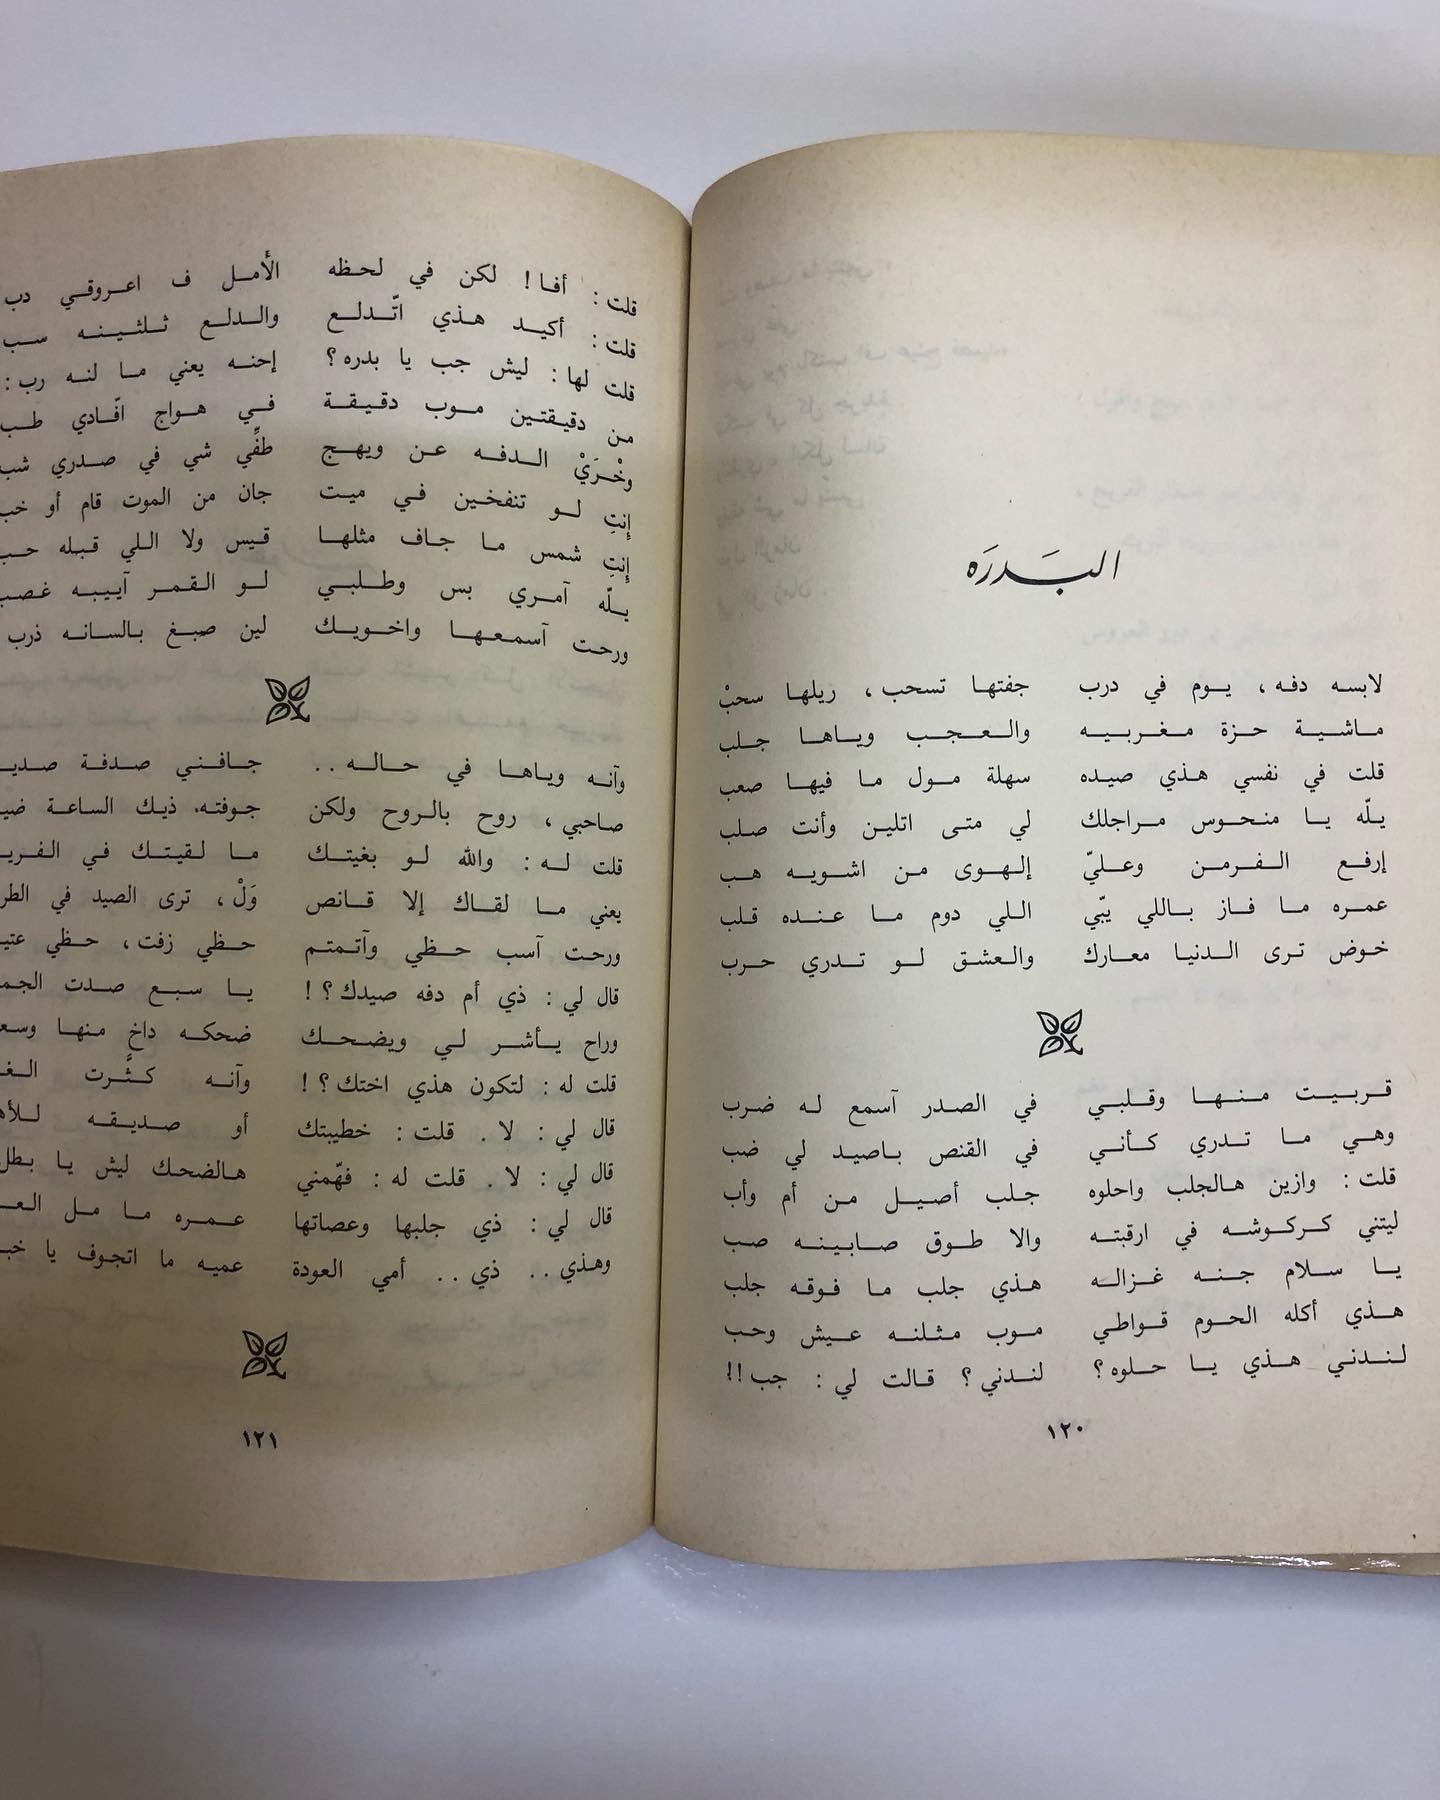 البَدرَه
لابسه دفه، يوم في درب جفتها تسحب، ريلها سحبْ
ماشية حزة مغربيه والعجب وياها جلب
قلت في نفسي هذي صيده سهلة مول ما فيها صعب
يلّه يا منحوس مراجلك لي متى اتلين وأنت صلب
إرفع الفرمن وعليّ إلهوى من اشويه هب
عمره ما فاز باللي يبّي اللي دوم ما عنده قلب
خوض ترى الدنيا معارك والعشق لو تدري حرب
قربيت منها وقلبي في الصدر آسمع له ضرب
وهي ما تدري كأني في القنص باصيد لي ضب
قلت: وازين هالجلب واحلوه جلب أصيل من أم وأب
ليتني كركوشه في ارقبته والا طوق صابينه صب
يا سلام جنه غزاله هذي جلب ما فوقه جلب
هذي أكله الحوم قواطي موب مثلنه عيش وحب
لندني هذي يا حلوه؟ لندني؟ قالت لي: جب!!
١٢٠
قلت: أفا! لكن في لحظه الأمل ف اعروقي دب
قلت: أكيد هذي اتّدلع والدلع ثلثينه سب
قلت لها: ليش جب يا بدره؟ إحنه يعني ما لنه رب:
من دقيقتين موب دقيقة في هواج افّادي طب
وخْرَيْ الدفه عن ويهج طفِّي شي في صدري شب
إنتِ لو تنفخين في ميت جان من الموت قام أو خب
إنتِ شمس ما جاف مثلها قيس ولا اللي قبله حب
يلّه آمري بس وطلبي لو القمر آييبه غصب
ورحت آسمعها واخويك لين صبغ بالسانه ذرب
وآنه وياها في حاله.. جافني صدفة
صاحبي، روح بالروح ولكن جوفته. ذيك الساعة
قلت له: والله لو بغيتك ما لقيتك في
يعني ما لقاك إلا قانص وَلْ، ترى الصيد في
ورحت آسب حظي وآتمتم حظي زفت، حظي
قال لي: ذي أم دفه صيدك؟! يا سبع صدت
وراح يأشر لي ويضحك ضحكه داخ منها
قلت له: لتكون هذي اختك؟! وآنه كثّرت
قال لي: لا. قلت: خطيبتك أو صديقه
قال لي: لا. قلت له: فهّمني هالضحك ليش يا بطل
قال لي: ذي جلبها وعصاتها عمره ما مل
وهذي.. ذي.. أمي العودة عميه ما اتجوف يا
١٢١